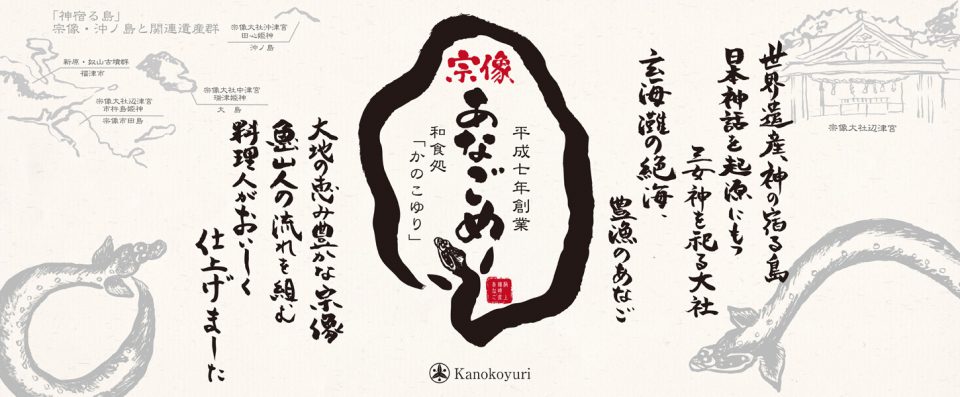 世界遺産、神の宿る島
日本神話を起源にもつ
三女神を祀る大社
玄海灘の絶海、
豊漁のあなご
宗像
あなごめし
平成七年創業
和食処
「かのこゆり」
大地の恵み豊かな宗像
魯山人の流れを組む
料理人がおいしく
仕上げました
Kanokoyuri
「神宿る島」
宗像・沖ノ島と関連遺産群
宗像大社沖津宮
田心姫神
沖ノ島
新原・奴山古墳群
福津市
宗像大社中津宮
湍津姫神
大島
宗像大社辺津宮
市杵島姫神
宗像市田島
宗像大社辺津宮